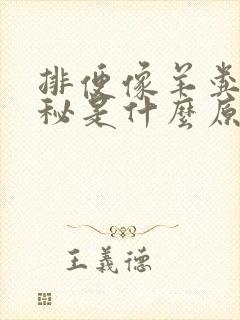 排便像羊粪
秘是什麼原
王義德